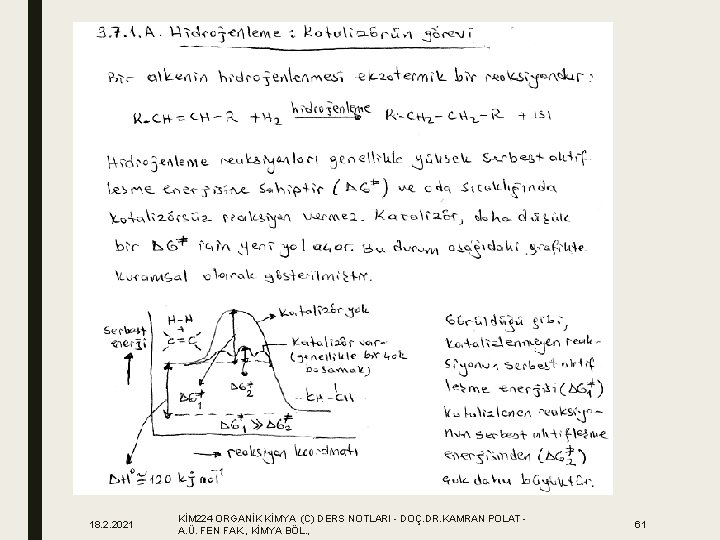 3.7.1.A. Hidrojenleme : Katalizörün görevi
Bir alkenin hidrojenlenmesi ekzotermik bir reaksiyondur:
R-CH=CH-R + H₂ hidrojenleme → R-CH₂-CH₂-R + ısı
Hidrojenleme reaksiyonları genellikle yüksek serbest aktif-
leşme enerjisine sahiptir (ΔG‡) ve oda sıcaklığında
katalizörsüz reaksiyon vermez. Katalizör, daha düşük
bir ΔG‡ için yeni yol açar. Bu durum aşağıdaki grafikte
kuramsal olarak gösterilmiştir.
Serbest
enerji
H-H
+
C=C
Katalizör yok
Katalizör var
(genellikle bir çok
basamak)
ΔG‡₁
ΔG‡₂
-CH-CH
ΔG‡₁ ≫ ΔG‡₂
→ reaksiyon koordinatı
ΔH° ≅ 120 kj mol⁻¹
Görüldüğü gibi,
katalizlenmeyen reak-
siyonun serbest aktif
leşme enerjisi (ΔG‡₁)
katalizlenen reaksiyo-
nun serbest aktifleşme
enerjisinden (ΔG‡₂)
çok daha büyüktür.
18.2.2021
KİM224 ORGANİK KİMYA (C) DERS NOTLARI - DOÇ.DR.KAMRAN POLAT -
A.Ü. FEN FAK., KİMYA BÖL.,
61